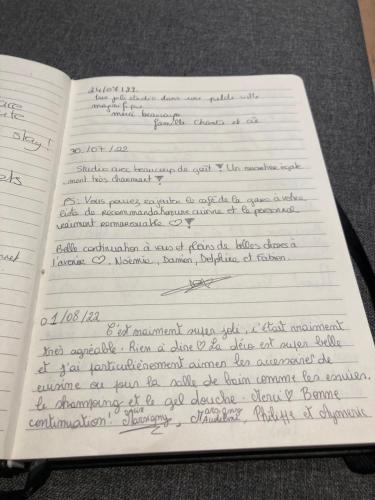 ace
stay!
24/07/22.
Très joli studio dans une petite ville
magnifique.
merci beaucoup
famille Charts et cie
30/07/22
Studio avec beaucoup de goût ! Un montre égale
ment très charmant !
PS: Vous pouvez rajouter le café de la gare à votre
liste de recommandations une cuisine et le personnel
vraiment remarquable ♡ !
Belle continuation à vous et pleins de belles choses à
l'avenir ♡. Noémie, Damien, Delphine et Fabien.
01/08/22
C'est vraiment super joli, c'était vraiment
très agréable. Rien à dire ♡ La déco est super belle
et j'ai particulièrement aimer les accessoires de
cuisine ou pour la salle de bain comme les essuies,
le shampoing et le gel douche. Merci ♡ Bonne
continuation! Philippe et Aymeric